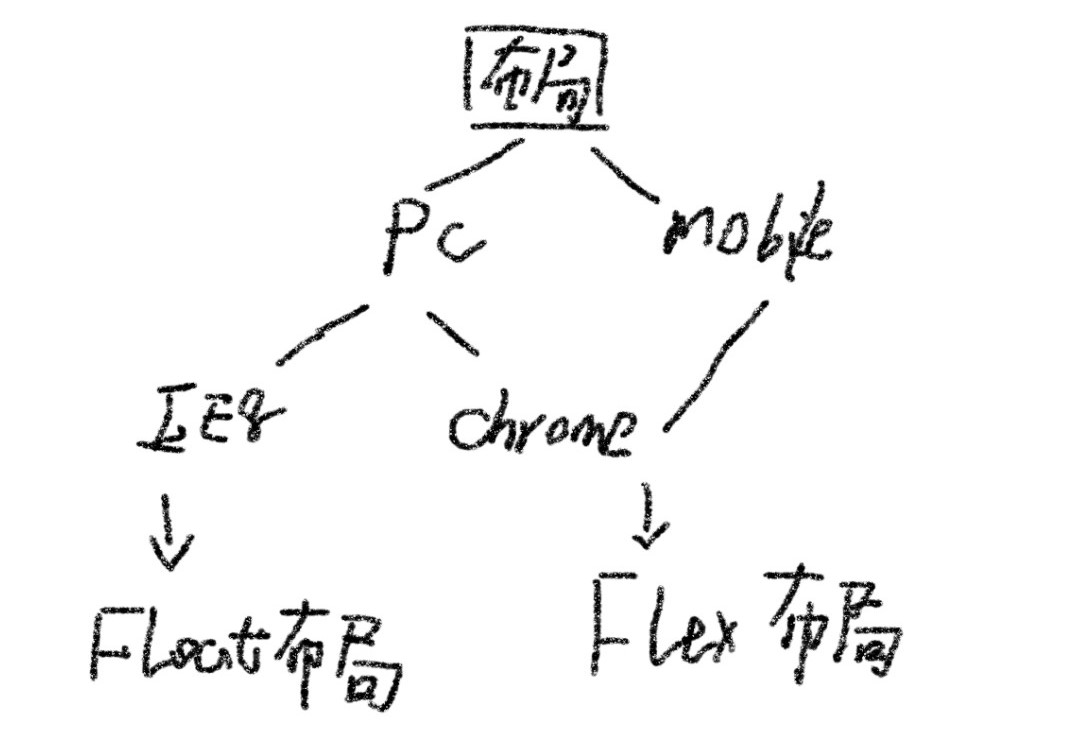 布局
PC
mobile
IE8
chrome
Float布局
Flex布局